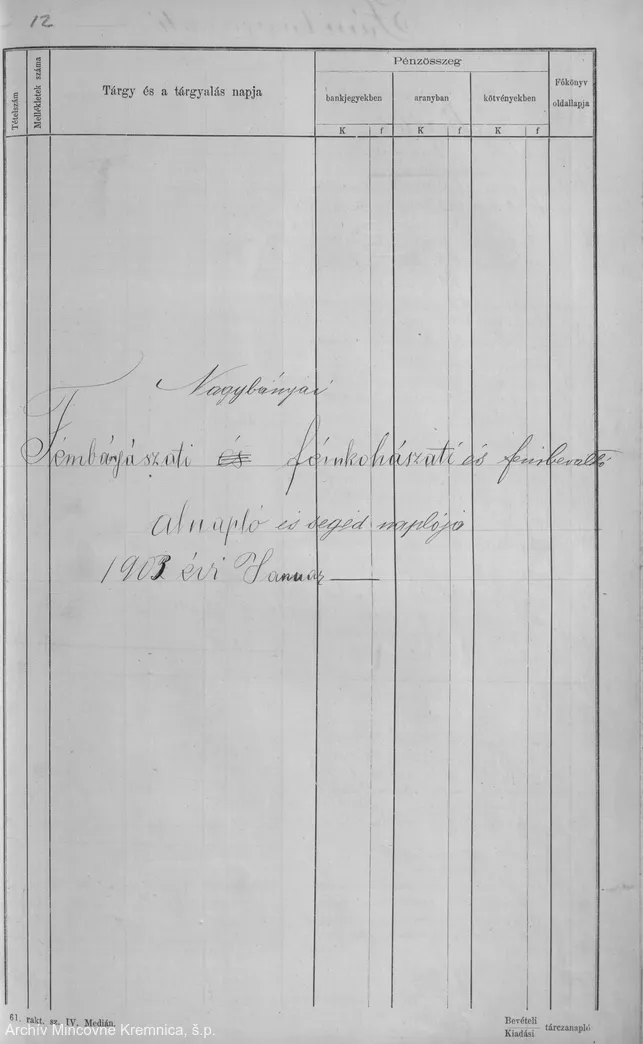 12
Tételszám
Mellékletek száma
Tárgy és a tárgyalás napja
Pénzösszeg
bankjegyekben
aranyban
kötvényekben
Főkönyv
oldallapja
K f K f K f
Nagybányai
Fémbányászati és fémkohászati és fémbeváltó
alnapló és segéd naplója
1903 évi Januar
61. rakt. sz. IV. Medián.
Bevételi
Kiadási
tárczanapló
Archív Mincovne Kremnica, š.p.